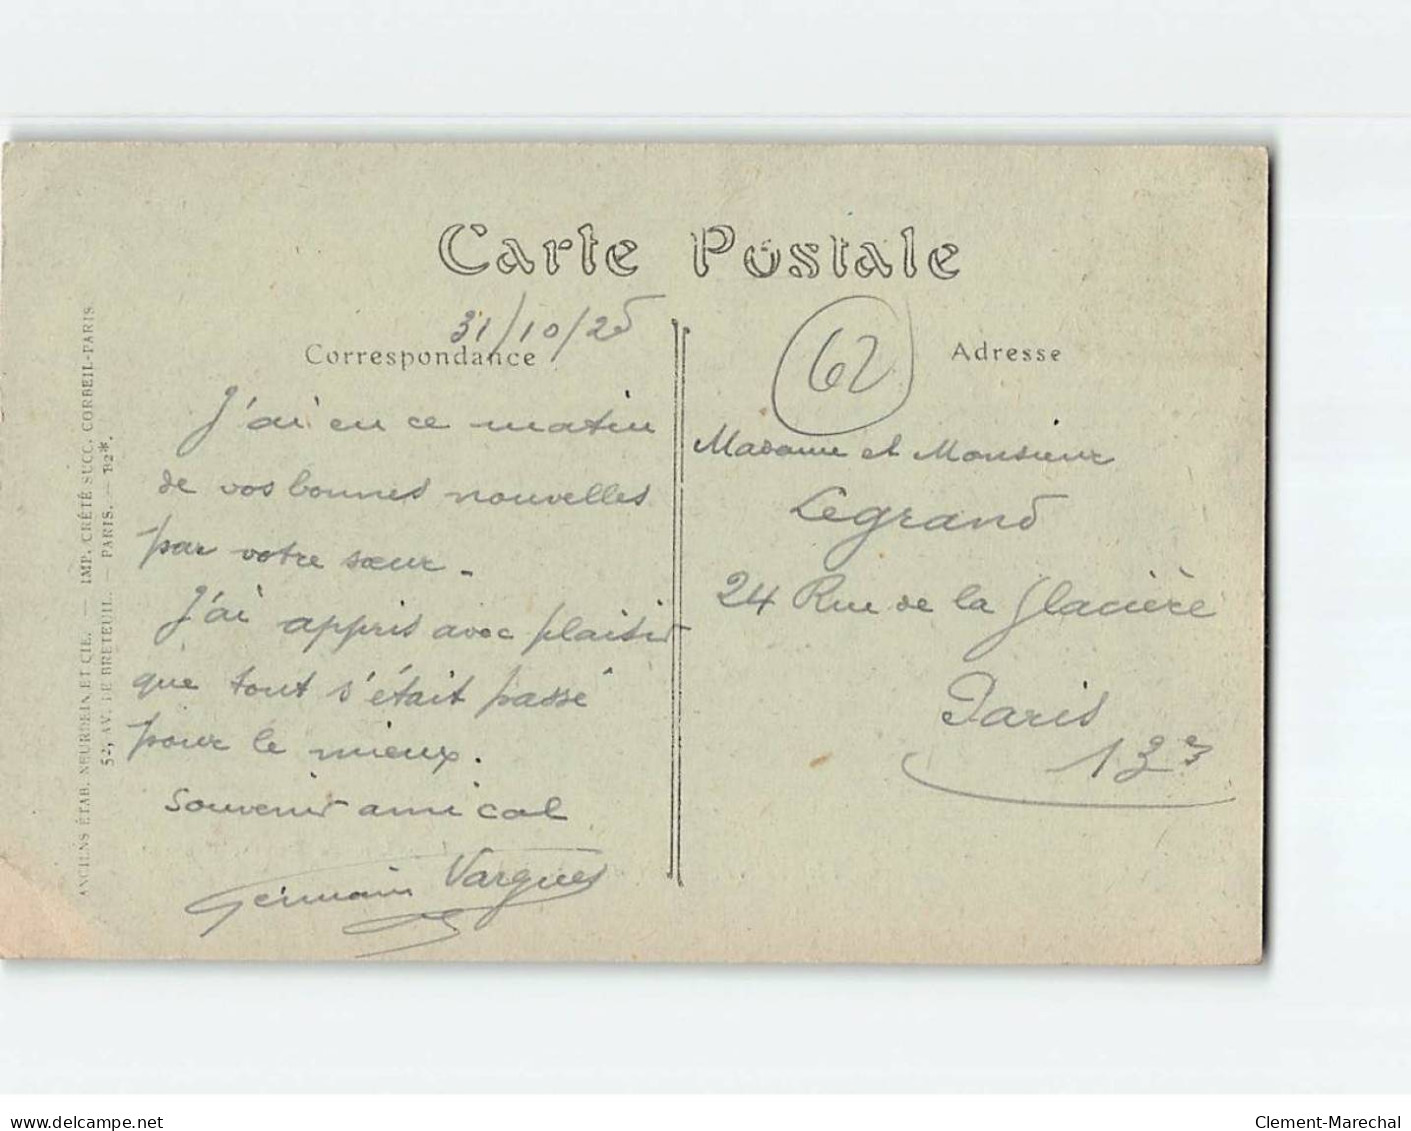 Carte Postale
31/10/25
Correspondance
J'ai eu ce matin
de vos bonnes nouvelles
par votre sœur.
J'ai appris avec plaisir
que tout s'était passé
pour le mieux.
Souvenir amical
Germain Vargues
62
Adresse
Madame et Monsieur
Legrand
24 Rue de la Glacière
Paris
13e
ANCIENS ÉTAB. NEURDEIN ET CIE. — IMP. CRÉTÉ SUCC. CORBEIL-PARIS
52, AV. DE BRETEUIL. — PARIS. — B2*.
delcampe.net
Clement-Marechal